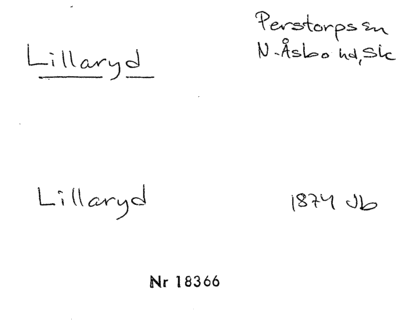 Perstorps sn
Lillaryd
N. Åsbo hd, Sk
Lillaryd
1874 Jb
Nr 18366